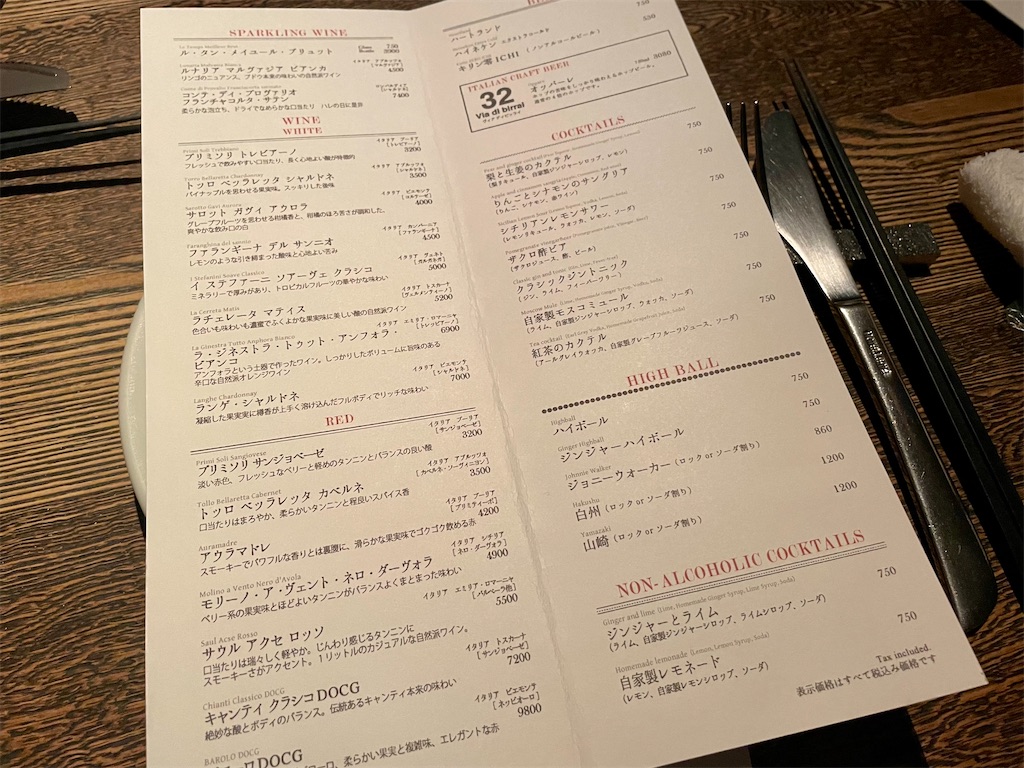 SPARKLING WINE
ル・タン・メイユール・ブリュット
Glass 750
Bottle 3900
ルナリア マルヴァジア ビアンカ
リンゴのニュアンス。ブドウ本来の味わいの自然派ワイン
イタリア アブルッツォ
[マルヴァジア]
4500
コンテ・ディ・プロヴァリオ
フランチャコルタ・サテン
柔らかな泡立ち、ドライでなめらかな口当たり ハレの日に是非
[シャルドネ]
7400
WINE
WHITE
Primi Soli Trebbiano
プリミソリ トレビアーノ
フレッシュで飲みやすい口当たり、長く心地よい酸が特徴的
イタリア プーリア
[トレビアーノ]
3200
Torro Bellaretta Chardonnay
トッロ ベッラレッタ シャルドネ
パイナップルを思わせる果実味。スッキリした後味
イタリア アブルッツォ
[シャルドネ]
3500
Sarotto Gavi Aurora
サロット ガヴィ アウロラ
グレープフルーツを思わせる柑橘香と、柑橘のほろ苦さが調和した、
爽やかな飲み口の白
イタリア ピエモンテ
[コルテーゼ]
4000
Faranghina del sannio
ファランギーナ デル サンニオ
レモンのような引き締まった酸味と心地よい苦み
イタリア カンパーニア
[ファランギーナ]
4500
I Stefanini Soave Classico
イ ステファーニ ソアーヴェ クラシコ
ミネラリーで厚みがあり、トロピカルフルーツの華やかな味わい
イタリア ヴェネト
[ガルガネガ]
5000
La Cerreta Matis
ラチェレータ マティス
色合いも味わいも濃蜜でふくよかな果実味に美しい酸の自然派ワイン
イタリア トスカーナ
[ヴェルメンティーノ]
5200
La Ginestra Tutto Anphora Bianco
ラ・ジネストラ・トゥット・アンフォラ・
ビアンコ
アンフォラという土器で作ったワイン。しっかりしたボリュームに旨味のある
辛口な自然派オレンジワイン
イタリア エミリア・ロマーニャ
[トレッビアーノ]
6900
Langhe Chardonnay
ランゲ・シャルドネ
凝縮した果実実に樽香が上手く溶け込んだフルボディでリッチな味わい
イタリア ピエモンテ
[シャルドネ]
7000
RED
Primi Soli Sangiovese
プリミソリ サンジョベーゼ
淡い赤色。フレッシュなベリーと軽めのタンニンとバランスの良い酸
イタリア プーリア
[サンジョベーゼ]
3200
Tollo Bellaretta Cabernet
トッロ ベッラレッタ カベルネ
口当たりはまろやか、柔らかいタンニンと程良いスパイス香
イタリア アブルッツォ
[カベルネ・ソーヴィニヨン]
3500
Auramadre
アウラマドレ
スモーキーでパワフルな香りとは裏腹に、滑らかな果実味でゴクゴク飲める赤
イタリア プーリア
[プリミティーボ]
4200
Molino a Vento Nero d'Avola
モリーノ・ア・ヴェント・ネロ・ダーヴォラ
ベリー系の果実味とほどよいタンニンがバランスよくまとまった味わい
イタリア シチリア
[ネロ・ダーヴォラ]
4900
Saul Acse Rosso
サウル アクセ ロッソ
口当たりは瑞々しく軽やか。じんわり感じるタンニンに
スモーキーさがアクセント。１リットルのカジュアルな自然派ワイン。
イタリア エミリア・ロマーニャ
[バルベーラ他]
5500
Chianti Classico DOCG
キャンティ クラシコDOCG
絶妙な酸とボディのバランス。伝統あるキャンティ本来の味わい
イタリア トスカーナ
[サンジョベーゼ]
7200
BAROLO DOCG
DOCG
柔らかい果実と複雑味、エレガントな赤
イタリア ピエモンテ
[ネッビオーロ]
9800
ハートランド
750
ハイネケン エクストラコールド
550
キリン零ICHI （ノンアルコールビール）
ITALIAN CRAFT BEER
32
Via di birrai
ヴィア ディ ビッライ
オッパーレ
3080
COCKTAILS
梨と生姜のカクテル
(梨リキュール、自家製ジンジャーシロップ、レモン)
750
りんごとシナモンのサングリア
(りんご、レナモン、赤ワイン)
750
シチリアンレモンサワー
(レモンリキュール、ラオッカ、レモン、ソーダ)
750
ザクロ酢ビア
(ザクロジュース、酢、ビール)
750
クラシックジントニック
(ジン、ライム、フィーバーツリー)
750
Moscow Mule (Lime, Homemade Ginger Syrup, Vodka, Soda)
自家製モスコミュール
(ライム、自家製ジンジャーシロップ、ラオッカ、ソーダ)
750
Tea cocktail (Earl Gray Vodka, Homemade Grapefruit Juice, Soda)
紅茶のカクテル
(アールグレイラオッカ、自家製グレープフルーツジュース、ソーダ)
750
HIGH BALL
Highball
ハイボール
750
Ginger Highball
ジンジャーハイボール
750
Johnnie Walker
ジョニーウォーカー（ロック or ソーダ割り）
860
Hakushu
白州（ロック or ソーダ割り）
1200
Yamazaki
山崎（ロック or ソーダ割り）
1200
NON-ALCOHOLIC COCKTAILS
Ginger and lime (Lime, Homemade Ginger Syrup, Lime Syrup, Soda)
ジンジャーとライム
(ライム、自家製ジンジャーシロップ、ライムシロップ、ソーダ)
750
Homemade lemonade (Lemon, Lemon Syrup, Soda)
自家製レモネード
(レモン、自家製レモンシロップ、ソーダ)
750
Tax included.
表示価格はすべて税込み価格です